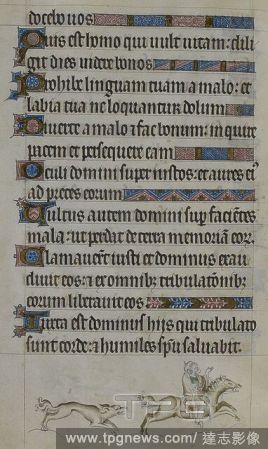 docebo uos
Quis est homo qui uult uitam: dili
git dies uidere bonos
Prohibe linguam tuam a malo: et
labia tua ne loquantur dolum
Diuerte a malo & fac bonum: inquire
pacem et persequere eam
Oculi domini super iustos: et aures ei'
ad preces eorum
Uultus autem domini sup facientes
mala: ut perdat de terra memoriam eor.
Clamauerunt iusti et dominus exau
diuit eos: & ex omnibz tribulationibz
eorum liberauit eos
Iuxta est dominus hijs qui tribulato
sunt corde: & humiles spu saluabit.
TPG
www.tpgnews.com / 達志影像